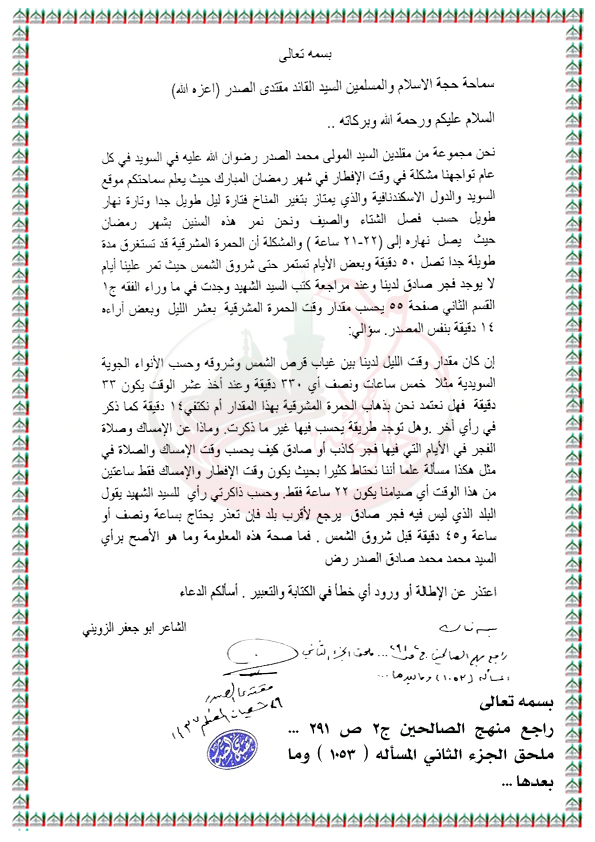 بسمه تعالى
سماحة حجة الاسلام والمسلمين السيد القائد مقتدى الصدر (اعزه الله)
السلام عليكم ورحمة الله وبركاته ..
نحن مجموعة من مقلدين السيد المولى محمد الصدر رضوان الله عليه في السويد في كل
عام تواجهنا مشكلة في وقت الإفطار في شهر رمضان المبارك حيث يعلم سماحتكم موقع
السويد والدول الاسكندنافية والذي يمتاز بتغير المناخ فتارة ليل طويل جدا وتارة نهار
طويل حسب فصل الشتاء والصيف ونحن نمر هذه السنين بشهر رمضان
حيث يصل نهاره إلى (٢٢-٢١ ساعة ) والمشكلة أن الحمرة المشرقية قد تستغرق مدة
طويلة جدا تصل ٥٠ دقيقة وبعض الأيام تستمر حتى شروق الشمس حيث تمر علينا أيام
لا يوجد فجر صادق لدينا وعند مراجعة كتب السيد الشهيد وجدت في ما وراء الفقه ج١
القسم الثاني صفحة ٥٥ يحسب مقدار وقت الحمرة المشرقية بعشر الليل وبعض أراءه
١٤ دقيقة بنفس المصدر. سؤالي:
إن كان مقدار وقت الليل لدينا بين غياب قرص الشمس وشروقه وحسب الأنواء الجوية
السويدية مثلا خمس ساعات ونصف أي ٣٣٠ دقيقة وعند أخذ عشر الوقت يكون ٣٣
دقيقة فهل نعتمد نحن بذهاب الحمرة المشرقية بهذا المقدار أم نكتفي١٤ دقيقة كما ذكر
في رأي أخر .وهل توجد طريقة يحسب فيها غير ما ذكرت. وماذا عن الإمساك وصلاة
الفجر في الأيام التي فيها فجر كاذب أو صادق كيف يحسب وقت الإمساك والصلاة في
مثل هكذا مسألة علما أننا نحتاط كثيرا بحيث يكون وقت الإفطار والإمساك فقط ساعتين
من هذا الوقت أي صيامنا يكون ٢٢ ساعة فقط. وحسب ذاكرتي رأي للسيد الشهيد يقول
البلد الذي ليس فيه فجر صادق يرجع لأقرب بلد فإن تعذر يحتاج بساعة ونصف أو
ساعة و٤٥ دقيقة قبل شروق الشمس . فما صحة هذه المعلومة وما هو الأصح برأي
السيد محمد محمد صادق الصدر رض
اعتذر عن الإطالة أو ورود أي خطأ في الكتابة والتعبير . أسألكم الدعاء
الشاعر ابو جعفر الزويني
بسمه تعالى
راجع منهج الصالحين ج٢ ص ٢٩١ ... ملحق الجزء الثاني
المسألة (١٠٥٣) وما بعدها ...
مقتدى الصدر
بسمه تعالى
راجع منهج الصالحين ج٢ ص ٢٩١ ...
ملحق الجزء الثاني المسأله ( ١٠٥٣ ) وما
بعدها ...